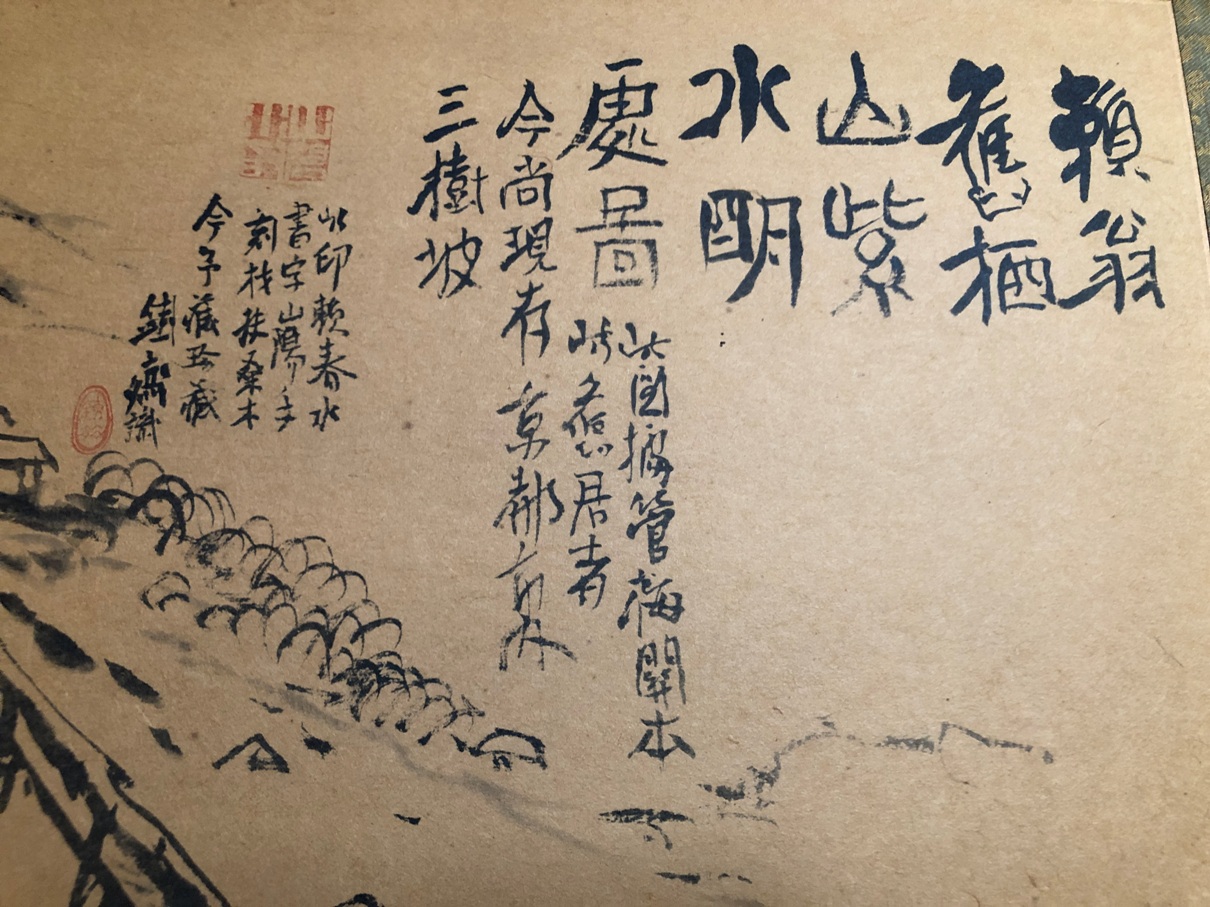 賴翁
舊栖
山紫
水明
處圖
此圖據菅梅關本
時
舊居者
今尚現存京都
三樹坡
此印賴春水
書字山陽手
刻材扶桑木
今予藏珍藏
鐵齋識